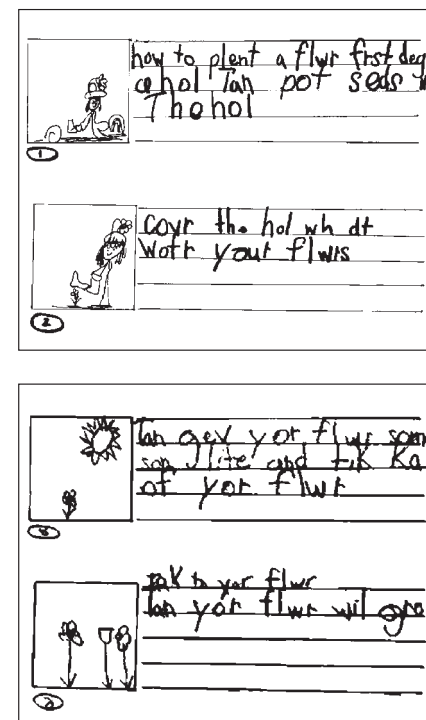 how to plent a flwr frst deg
a hol Tan pot seds
The hol
1
covr the hol wh dt
wotr your flwrs
2
Tan gev yor flwr som
son lite and tik Ka
of yor flwr
tak to yor flwr
Tan yor flwr wil gro